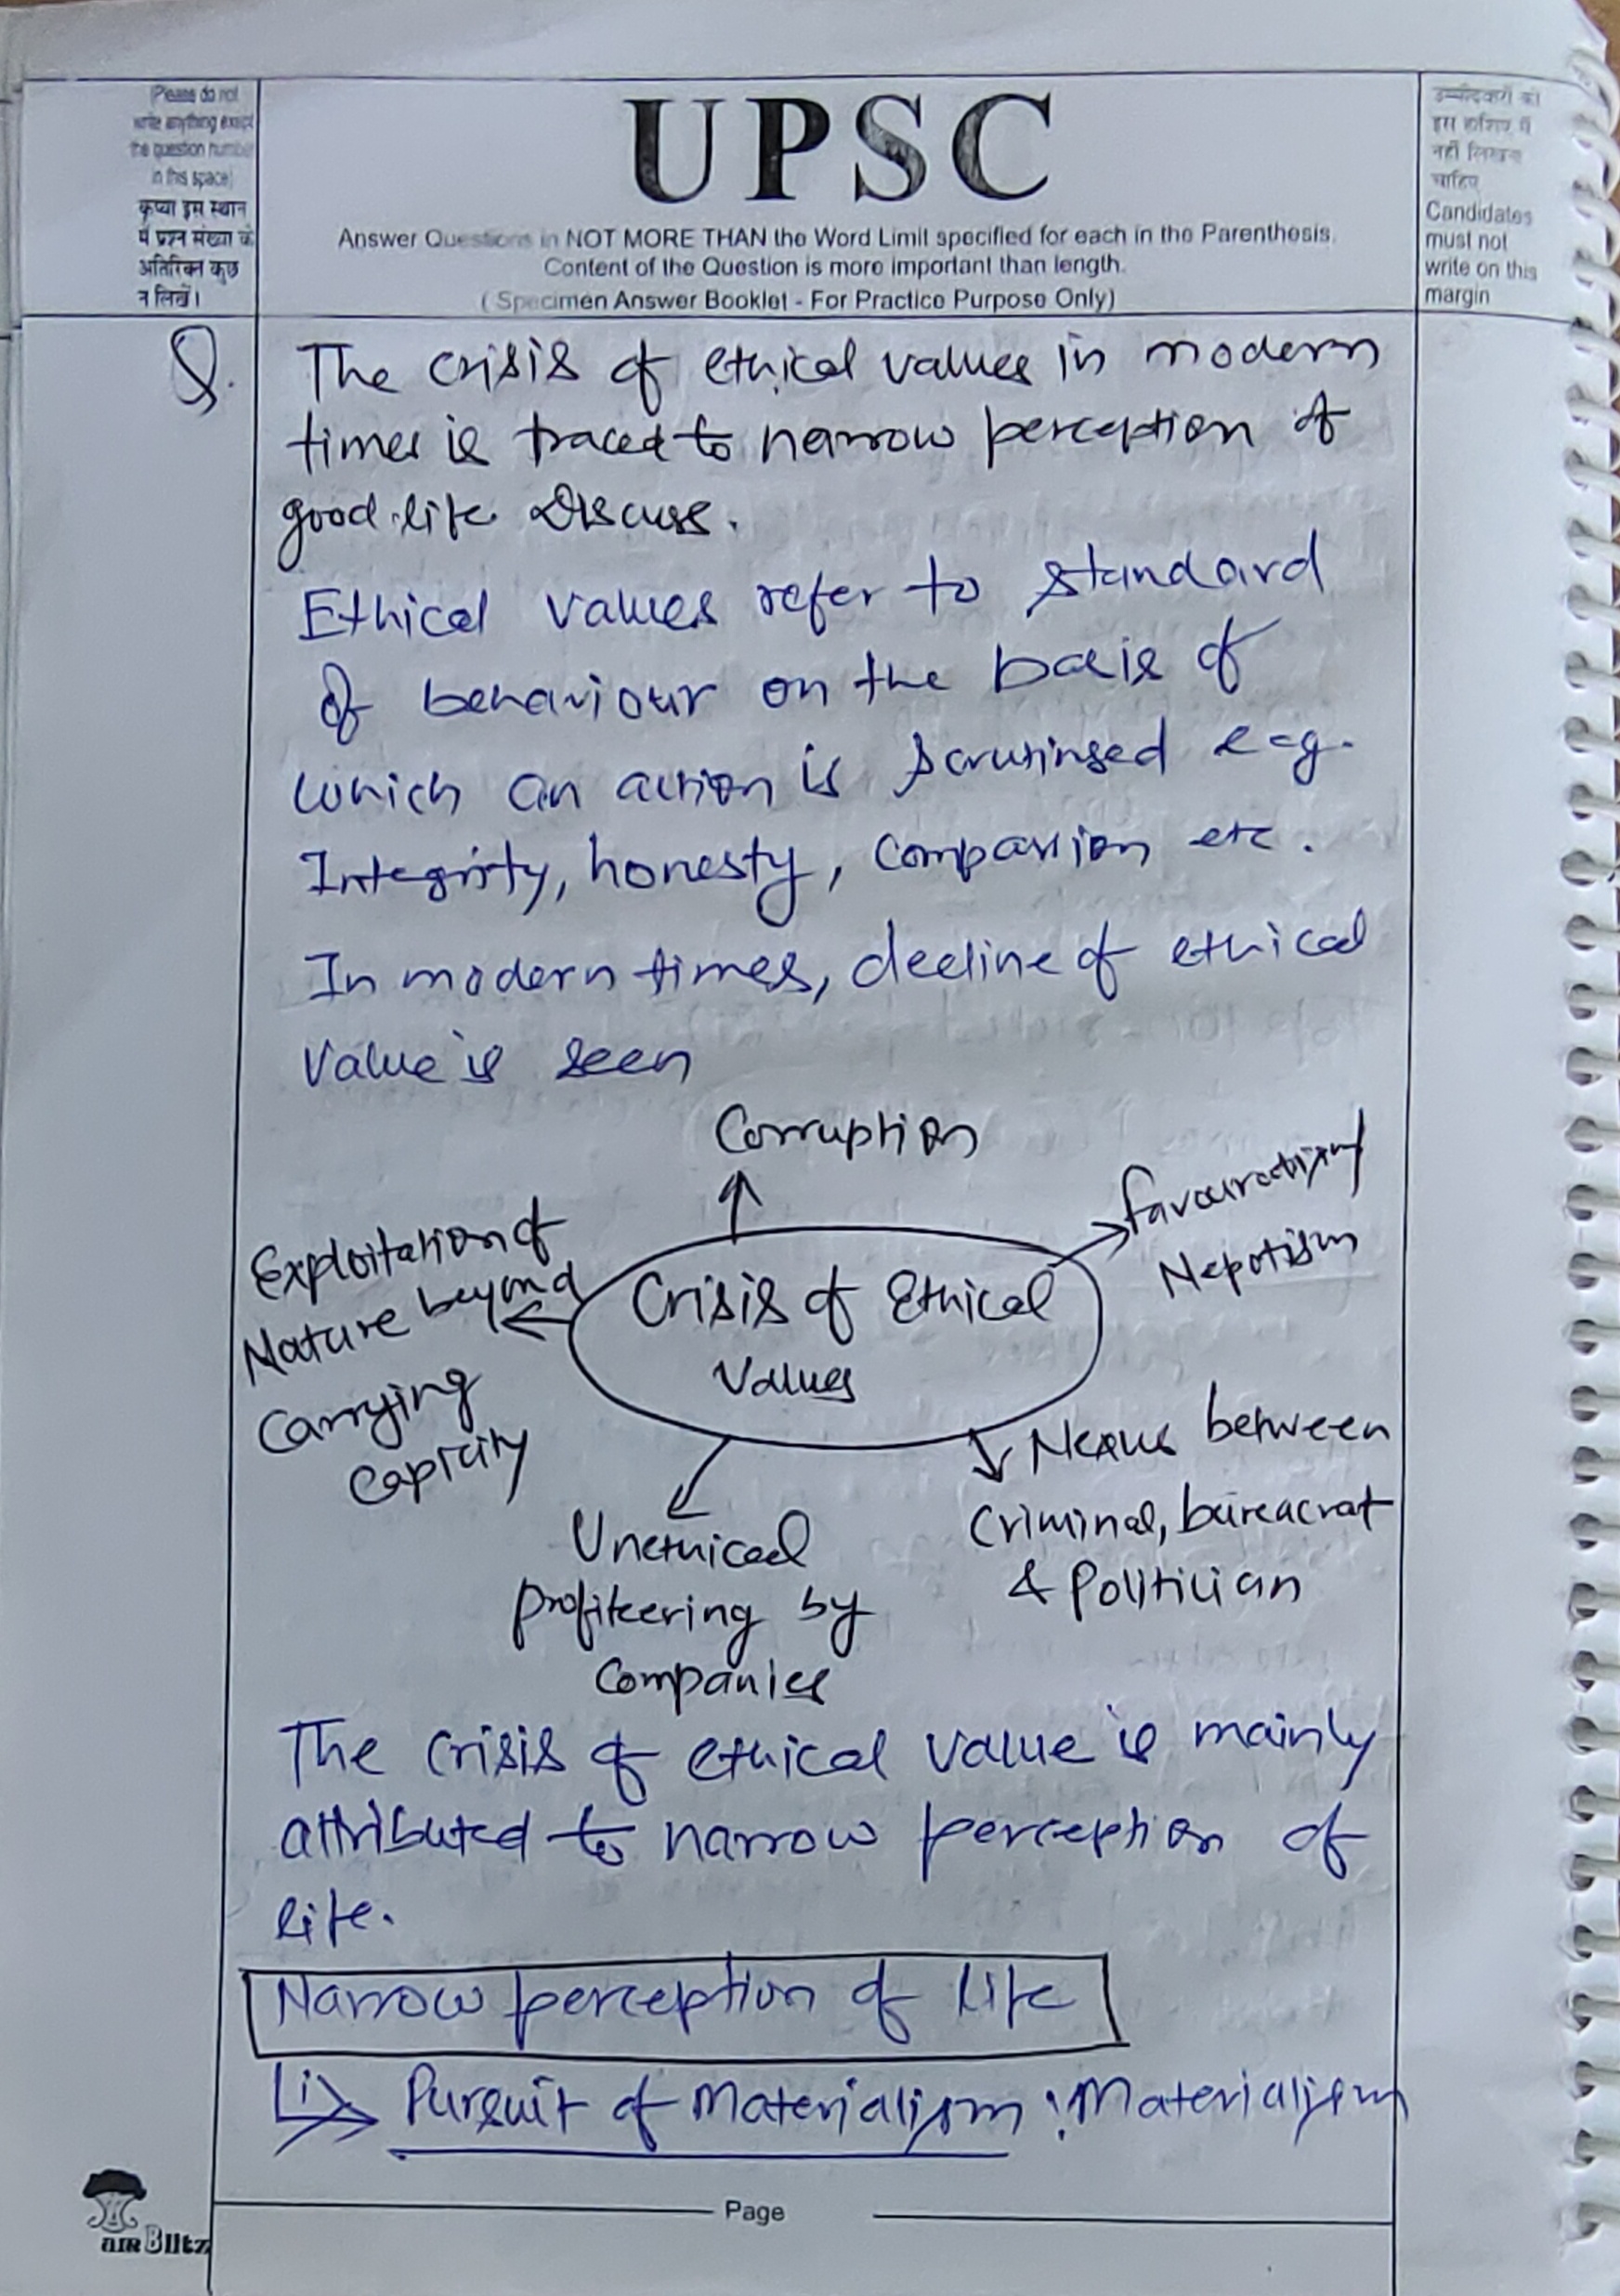 (Please do not
write anything except
the question number
in this space)
कृप्या इस स्थान
में प्रश्न संख्या के
अतिरिक्त कुछ
न लिखें।
UPSC
Answer Questions in NOT MORE THAN the Word Limit specified for each in the Parenthesis.
Content of the Question is more important than length.
( Specimen Answer Booklet - For Practice Purpose Only)
उम्मीदवारों को
इस हाशिए में
नहीं लिखना
चाहिए
Candidates
must not
write on this
margin
Q. The crisis of ethical values in modern
times is traced to narrow perception of
good life Discuss.
Ethical values refer to standard
of behaviour on the basis of
which an action is scrutinsed e.g.
Integrity, honesty, compassion etc.
In modern times, decline of ethical
value is seen
Corruption
favouratism
Nepotism
Exploitation of
Nature beyond
Carrying
Capicity
Crisis of Ethical
Values
Nexus between
Criminal, bureacrat
& Politician
Unethical
profiteering by
Companies
The crisis of ethical value is mainly
attributed to narrow perception of
life.
Narrow perception of life
i) Pursuit of Materialism : Materialism
Page
am Blitz